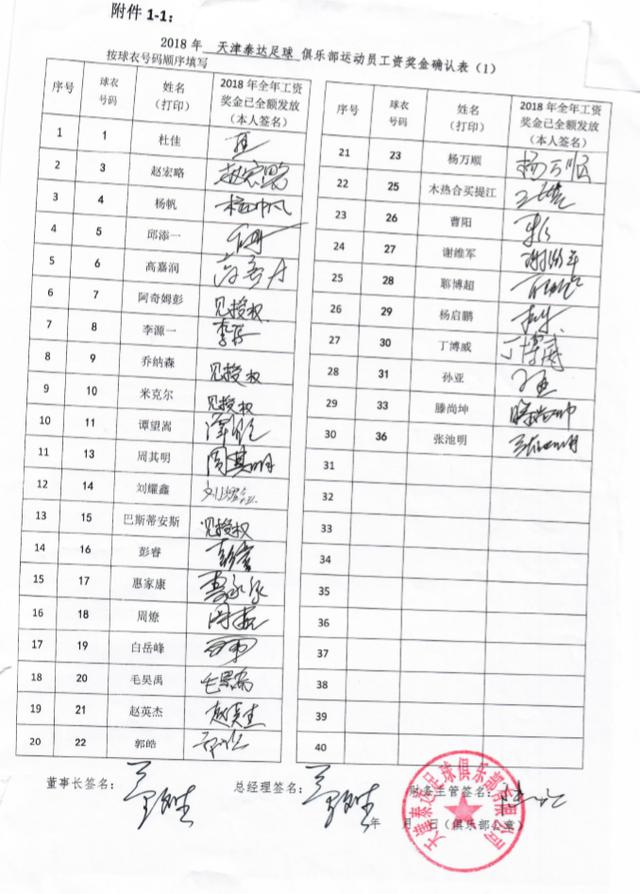 附件 1-1：
2018 年 天津泰达足球 俱乐部运动员工资奖金确认表（1）
按球衣号码顺序填写
序号 球衣号码 姓名（打印） 2018 年全年工资奖金已全额发放（本人签名）
1 1 杜佳
2 3 赵宏略 赵宏略
3 4 杨帆 杨帆
4 5 邱添一
5 6 高嘉润
6 7 阿奇姆彭 见授权
7 8 李源一
8 9 乔纳森 见授权
9 10 米克尔 见授权
10 11 谭望嵩
11 13 周其明 周其明
12 14 刘耀鑫
13 15 巴斯蒂安斯 见授权
14 16 彭睿
15 17 惠家康
16 18 周燎
17 19 白岳峰
18 20 毛昊禹
19 21 赵英杰 赵英杰
20 22 郭皓
序号 球衣号码 姓名（打印） 2018 年全年工资奖金已全额发放（本人签名）
21 23 杨万顺 杨万顺
22 25 木热合买提江
23 26 曹阳
24 27 谢维军
25 28 聊博超
26 29 杨启鹏
27 30 丁博威
28 31 孙亚
29 33 滕尚坤 滕尚坤
30 36 张池明
31
32
33
34
35
36
37
38
39
40
董事长签名： 总经理签名： 财务主管签名：
年 月 日（俱乐部公章）
天津泰达足球俱乐部有限公司